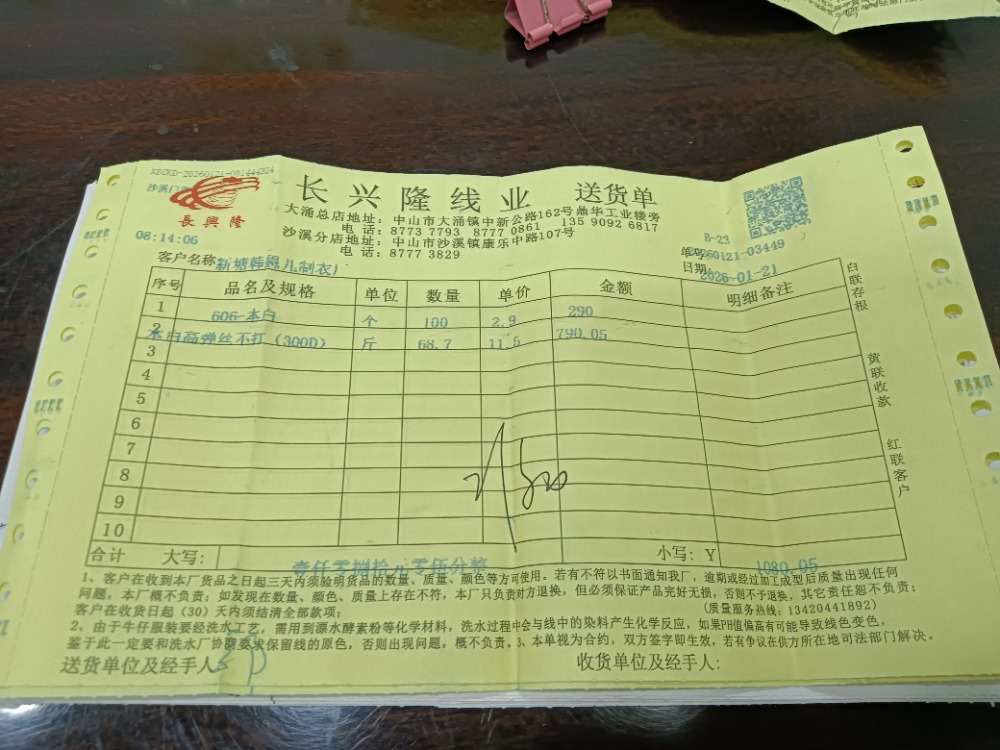 XSCKD-20260121-081444324
沙溪门
長興隆
长兴隆线业 送货单
大涌总店地址：中山市大涌镇中新公路162号鼎华工业楼旁
电话：8773 7793 8777 0861 135 9092 6817
沙溪分店地址：中山市沙溪镇康乐中路107号
电话：8777 3829
08:14:06
B-23
单号 20260121-03449
日期 2026-01-21
客户名称 新塘韩恩儿制衣厂
序号 品名及规格 单位 数量 单价 金额 明细备注
1 606-本白 个 100 2.9 290
2 本白高弹丝不打（300D） 斤 68.7 11.5 790.05
3
4
5
6
7
8
9
10
合计 大写： 壹仟零捌拾元零伍分整 小写：Y 1080.05
白联存根
黄联收款
红联客户
1、客户在收到本厂货品之日起三天内须验明货品的数量、质量、颜色等方可使用。若有不符以书面通知我厂，逾期或经过加工成型后质量出现任何
问题，本厂概不负责；如发现在数量、颜色、质量上存在不符，本厂只负责对方退换，但必须保证产品完好无损，否则不予退换，其它责任恕不负责；
客户在收货日起（30）天内须结清全部款项； （质量服务热线：13420441892）
2、由于牛仔服装要经洗水工艺，需用到漂水酵素粉等化学材料，洗水过程中会与线中的染料产生化学反应，如果PH值偏高有可能导致线色变色，
鉴于此一定要和洗水厂协商要求保留线的原色，否则出现问题，概不负责。3、本单视为合约，双方签字即生效，若有争议在供方所在地司法部门解决。
送货单位及经手人： 收货单位及经手人：